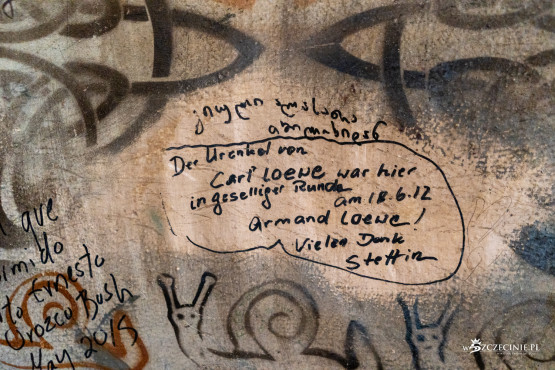 Der Urenkel von
Carl LOEWE war hier
in geselliger Runde
am 18.6.12
Armand LOEWE!
Vielen Dank
Stettin
que
Ernesto
Orozco Bush
May 2015
wSZCZECINIE.PL